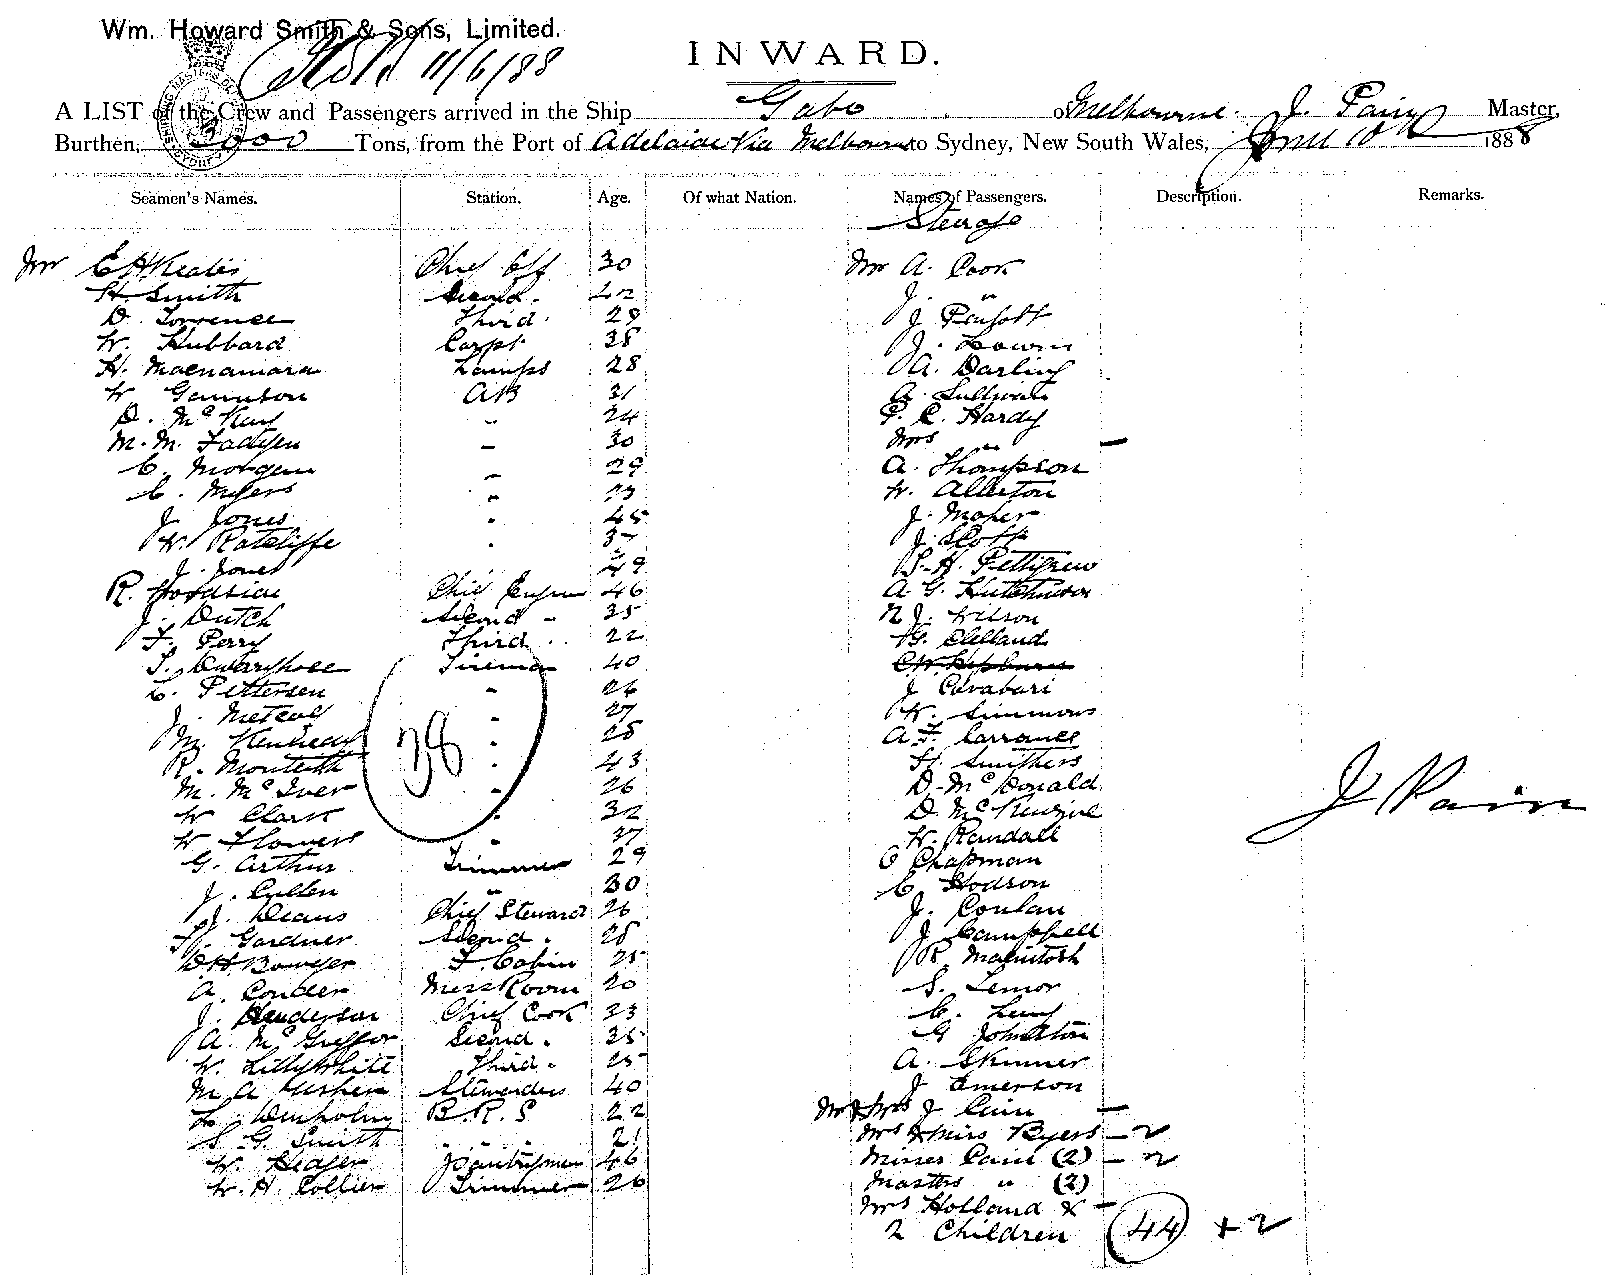 Wm. Howard Smith & Sons, Limited.
11/6/88
INWARD.
A LIST of the Crew and Passengers arrived in the Ship Gabo of Melbourne. J. Pain Master,
Burthen, 3000 Tons, from the Port of Adelaide Via Melbourne to Sydney, New South Wales, 10th 1888
Seamen's Names. Station. Age. Of what Nation. Names of Passengers. Description. Remarks.
Steerage
Mr E H Keates Chief Off 30 Mr A. Cook
H. Smith Second. 42 J. "
D. Torrence Third. 29 J
W. Hubbard Carpt 38 J.
H. Macnamara Lamps 28 A. Darling
W AB 31 A. Sullivan
D. McKay " 24 P. C. Hardy
M. M. Fadyen " 30 Mrs " —
C. Morgan " 29 A. Thompson
C. Myers " 23 W. Allerton
J. Jones " 45 J. Maher
W. Ratcliffe " J. Scott
J. Jones " 49 S. H. Pettigrew
R. Chief 46 A. G. Hutchinson
J. Dutch Second " 35 N J. Wilson
F. Perry Third " 22 G. Clelland
T. Fireman 40
C. Pettersen " 26 J
J. Metcalf " 27 W. Simmons
M. Kennedy " 25 A. F.
R. Monteith " 43 H. Smithers
M. McIver " 26 D. McDonald
W Clark " 32 D. McKenzie
W Flowers " 37 W. Randall
G. Arthur Trimmer 29 O Chapman
J. Cullen " 30 C Hodson
J. Deans Chief Steward 26 J. Conlan
F. Gardner Second. 28 J Campbell
D H Bowyer F. Cabin 25 R. Macintosh
A. Conder Mess Room 20 S. Lemor
J. Henderson Chief Cook 23 C. Levy
A. McGregor Second. 35 G Johnston
W. Lillywhite Third. 25 A. Skinner
M A Stewardess 40 J Emerson
L. Denholm B.R.S 22 Mr & Mrs J Pain —
S. G. Smith " " " 21 Mrs & Miss Byers — 2
W. Pantryman 46 Misses Pain (2) — 2
W. H. Collier Trimmer 26 Masters " (2)
Mrs Holland & —
2 Children 44 + 2
38
J Pain